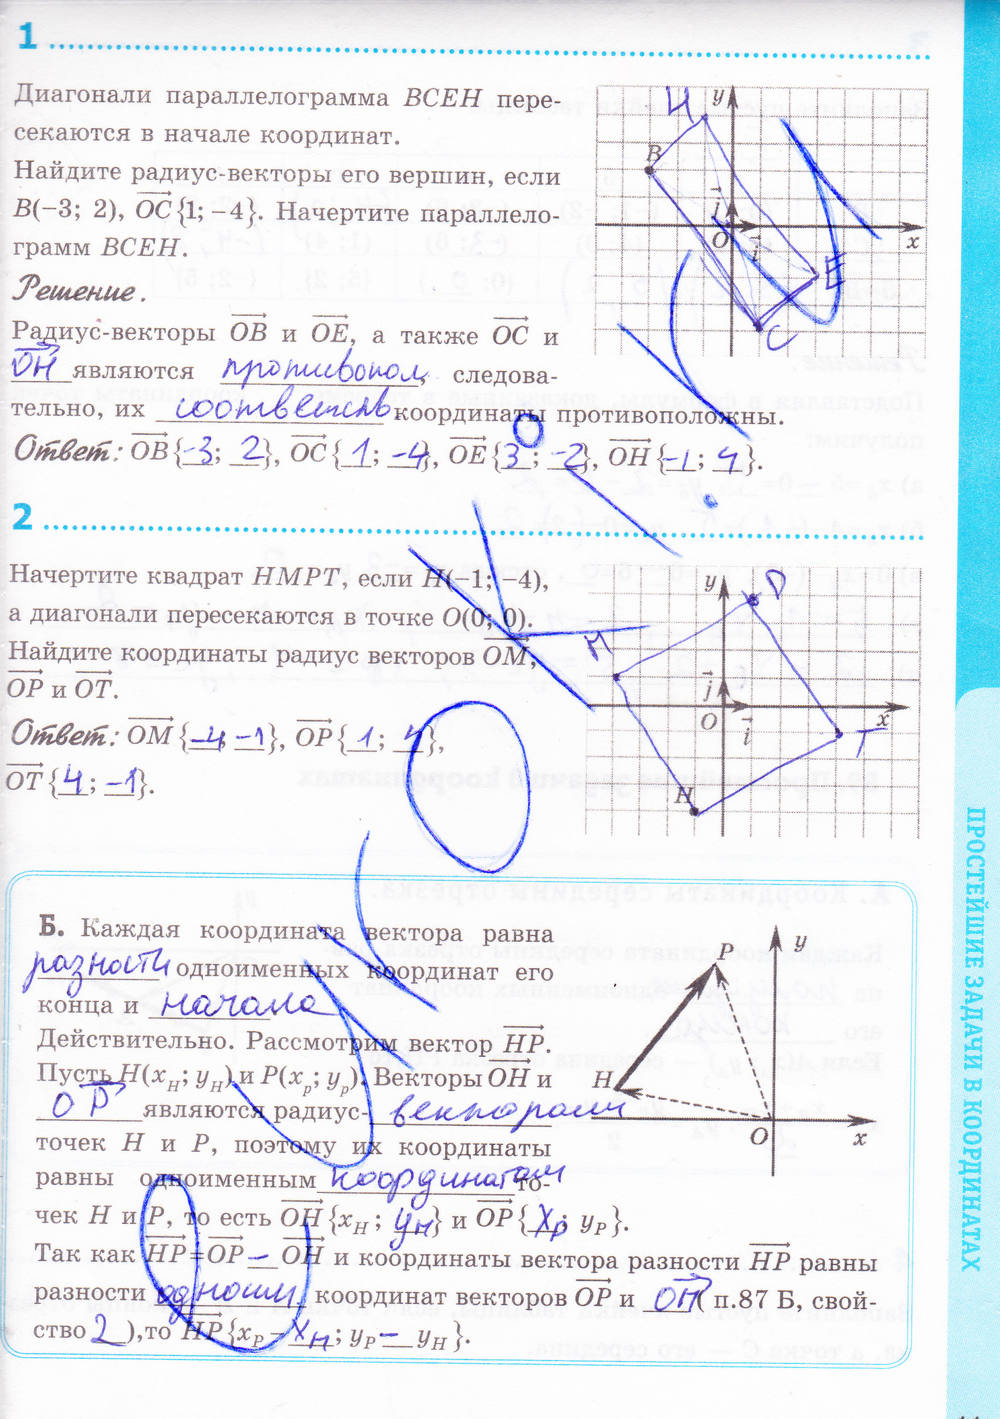 1
Диагонали параллелограмма BCEH пере-
секаются в начале координат.
Найдите радиус-векторы его вершин, если
B(−3; 2), OC{1; −4}. Начертите параллело-
грамм BCEH.
Решение.
Радиус-векторы OB и OE, а также OC и
OH являются противопол, следова-
тельно, их соответств координаты противоположны.
Ответ: OB{-3; 2}, OC{1; -4}, OE{3; -2}, OH{-1; 4}.
y
B
j
O
i
x
E
C
2
Начертите квадрат HMPT, если H(−1; −4),
а диагонали пересекаются в точке O(0; 0).
Найдите координаты радиус векторов OM,
OP и OT.
Ответ: OM{-4; -1}, OP{1; 4},
OT{4; -1}.
y
M
j
O
i
x
T
H
Б. Каждая координата вектора равна
разности одноименных координат его
конца и начала
Действительно. Рассмотрим вектор HP.
Пусть H(xH; yH) и P(xp; yp). Векторы OH и
OP являются радиус- векторами
точек H и P, поэтому их координаты
равны одноименным координатам то-
чек H и P, то есть OH{xH; yH} и OP{xP; yP}.
Так как HP=OP − OH и координаты вектора разности HP равны
разности одноим. координат векторов OP и OH ( п.87 Б, свой-
ство 2),то HP{xP − xH; yP − yH}.
P
y
H
O
x
ПРОСТЕЙШИЕ ЗАДАЧИ В КООРДИНАТАХ